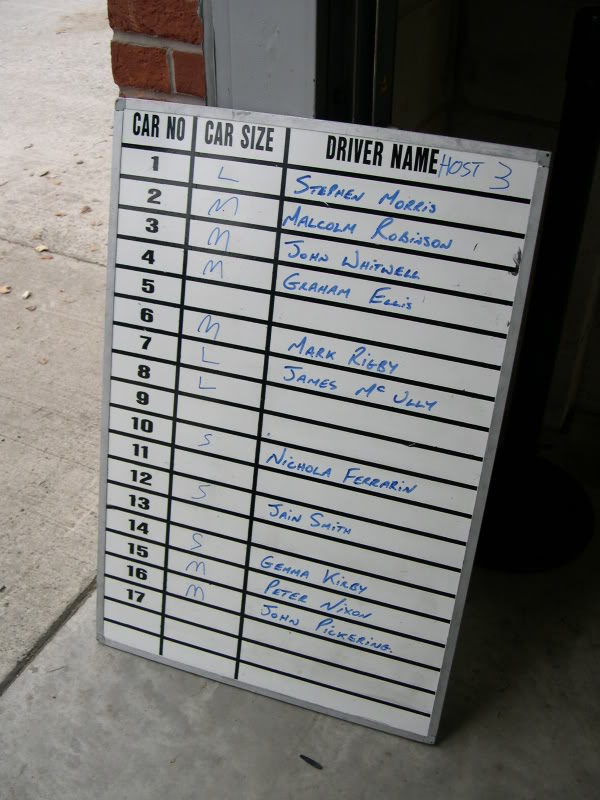 CAR NO CAR SIZE DRIVER NAME HOST 3
1 L STEPHEN MORRIS
2 M MALCOLM ROBINSON
3 M JOHN WHITWELL
4 M GRAHAM ELLIS
5
6 M MARK RIGBY
7 L JAMES McULLY
8 L
9
10 S NICHOLA FERRARIN
11
12 S JAIN SMITH
13
14 S GEMMA KIRBY
15 M PETER NIXON
16 M JOHN PICKERING.
17